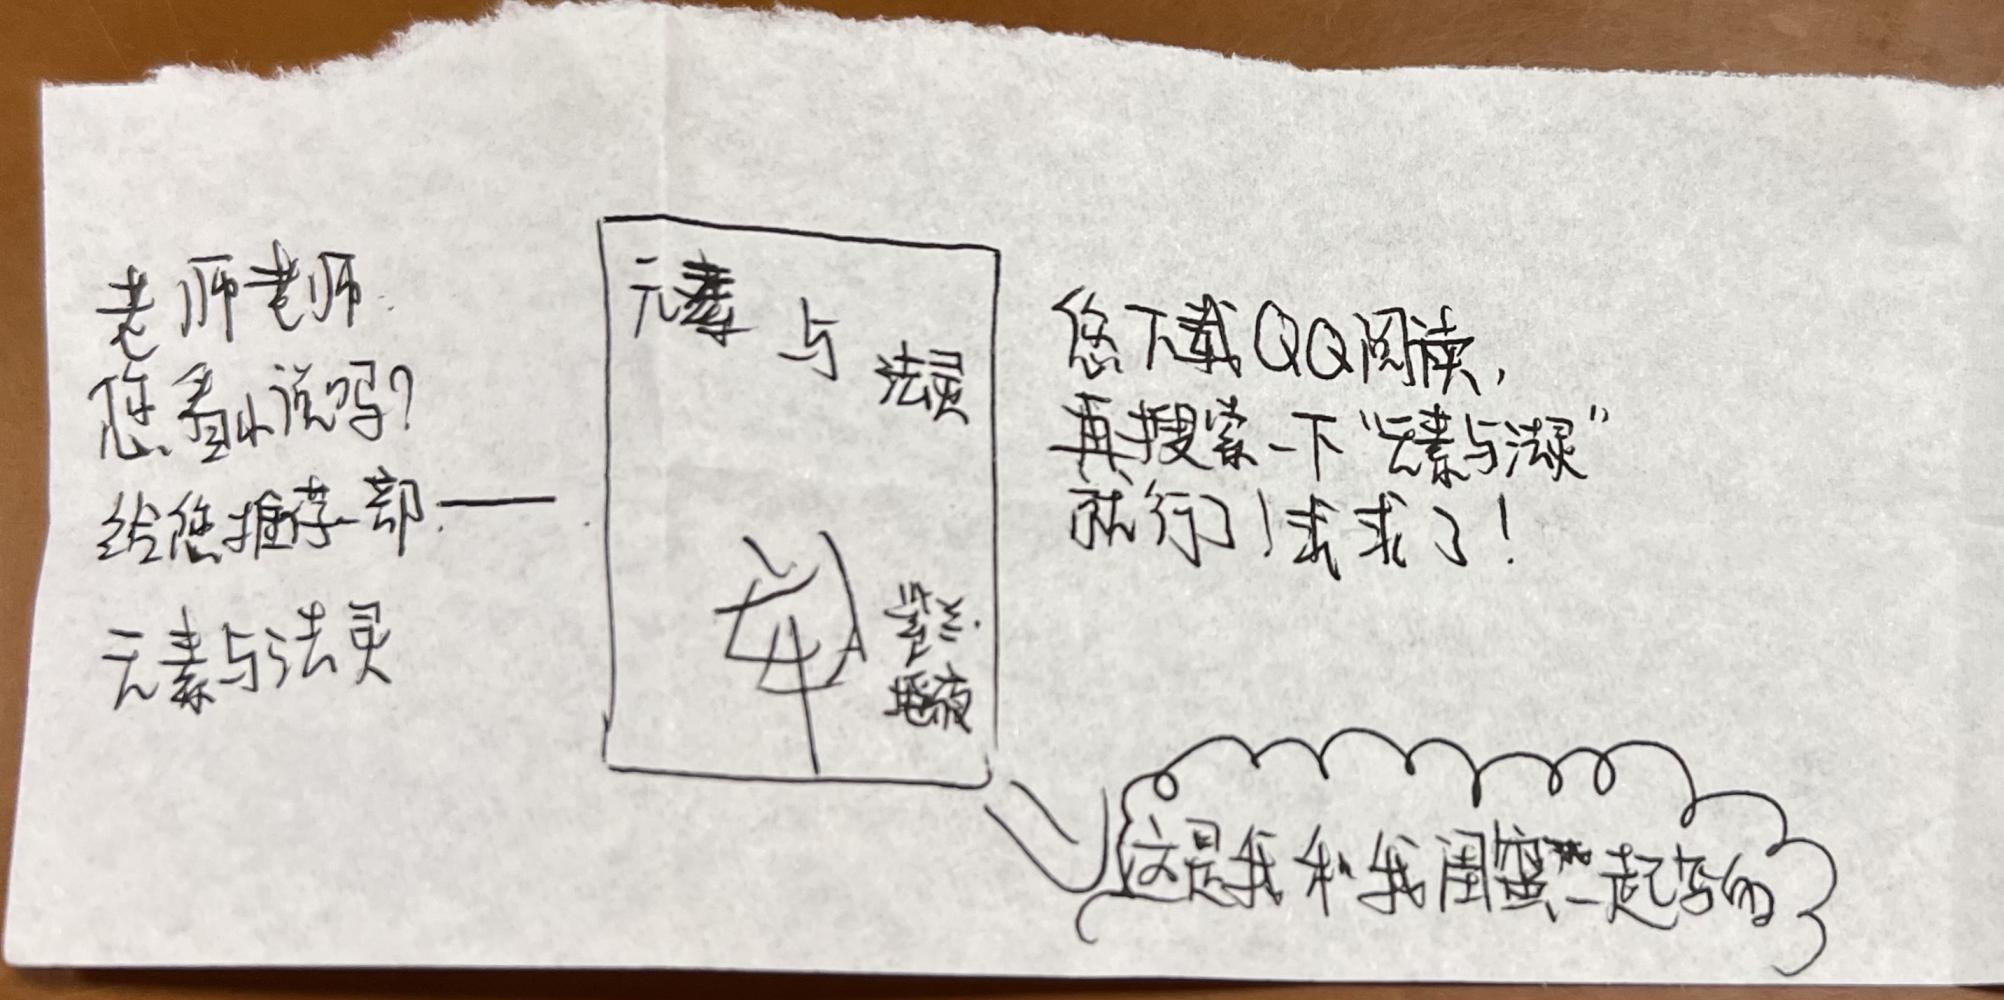 老师老师
您看小说吗？
给您推荐一部——
元素与法灵
元素
与
法灵
您下载QQ阅读，
再搜索一下“元素与法灵”
就行了！求求了！
这是我和我闺蜜一起写的